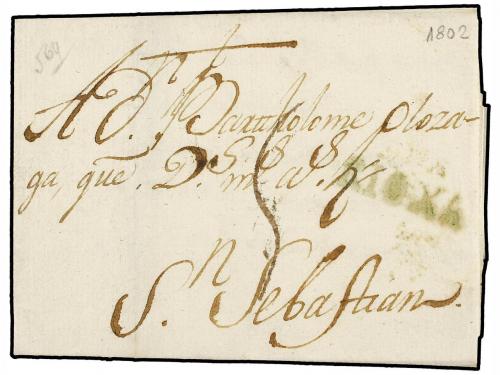 564
1802
A D.n Bartholome Oloza-
ga, que D.s m.s a.s g.e
RIOXA
S.n Sebastian